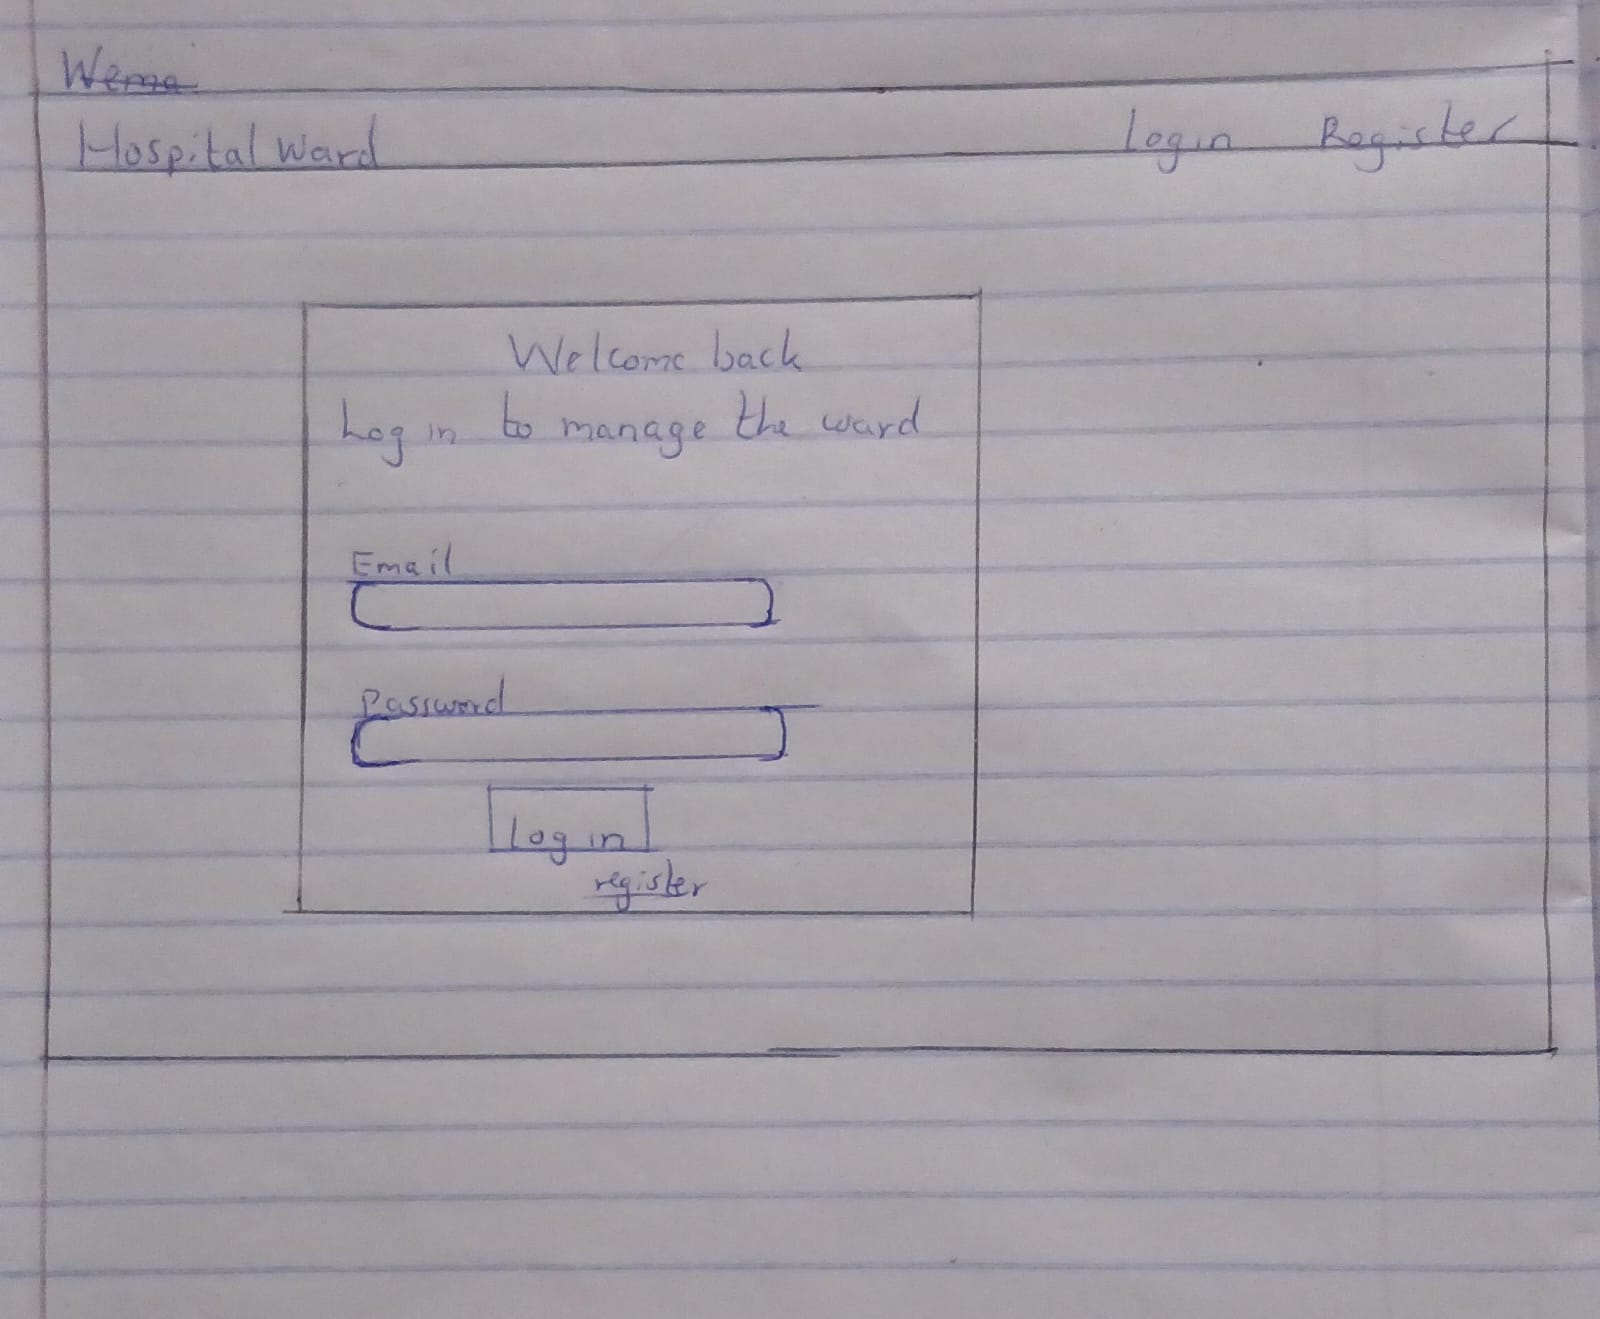 Wema
Hospital Ward Login Register
Welcome back
Log in to manage the ward
Email
Password
Log in
register